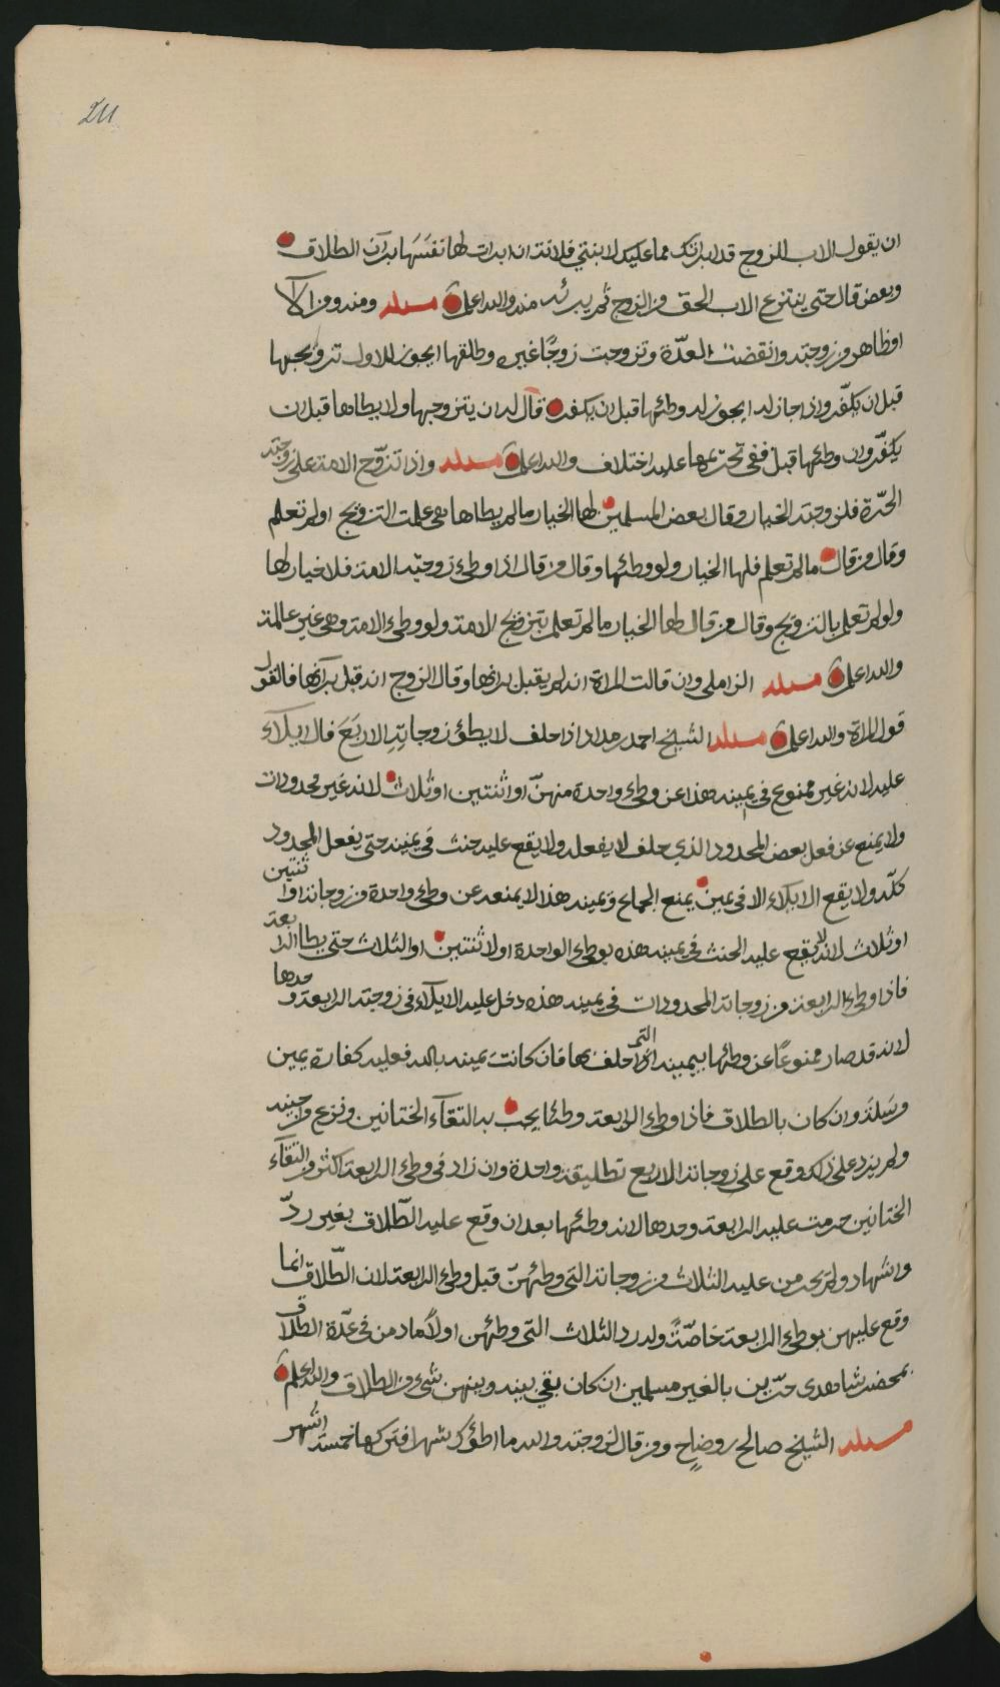 211
ان يقول الاب للزوج قد ابرأتك مما عليك لابنتي فلانة ان ابرات لها نفسها برآن الطلاق
وبعض قال حتى ينتزع الاب الحق من الزوج ثم يبرئه منه والله اعلم مسئلة ومنه ومن آلا
او ظاهر من زوجته وانقضت العدّة وتزوجت زوجًا غيره وطلقها ايجوز للاول تزويجها
قبل ان يكفّر واذا جاز له ايجوز له وطئها قبل ان يكفر قال له ان يتزوجها ولا يطاها قبل ان
يكفّر وان وطئها قبل ففي تحريمها عليه اختلاف والله اعلم مسئلة واذا تزوّج الامة على زوجته
الحرّة فلزوجته الخيار وقال بعض المسلمين لها الخيار ما لم يطاها هي علمت التزويج او لم تعلم
وقال من قال ما لم تعلم فلها الخيار ولو وطئها وقال من قال اذا وطئ زوجته الامة فلا خيار لها
ولو لم تعلم بالتزويج وقال من قال لها الخيار ما لم تعلم بتزويج الامة ولو وطئ الامة وهي غير عالمة
والله اعلم مسئلة الزاملي وان قالت المراة انه لم يقبل برانها وقال الزوج انه قبل برآنها فالقول
قول المراة والله اعلم مسئلة الشيخ احمد بن مداد اذا حلف لا يطؤ زوجاتِهِ الاربَعَ فال ايلاء
عليه لانه غير ممنوع في يمينه هذا عن وطئ واحدة منهنّ او اثنتين او ثلاث لانه غير محدودات
ولا يمنع عن فعل بعض المحدود الذي حلف لا يفعله ولا يقع عليه حنث في يمينه حتى يفعل المحدود
كلّه ولا يقع الايلاء الا في يمين يمنع الجماع ويمينه هذا لا يمنعه عن وطئ واحدة من زوجاته او اثنتين
او ثلاث لانه لا يقع عليه الحنث في يمينه هذه بوطئ الواحدة او لاثنتين او الثلاث حتى يطا الرابعة
فاذا وطئ الرابعة من زوجاته المحدودات في يمينه هذه دخل عليه الايلاء في زوجته الرابعة وحدها
لانه قد صار ممنوعًا عن وطئها بيمينه التي حلف بها فان كانت يمينه بالله فعليه كفارة يمين
مرسَلة وان كان بالطلاق فاذا وطئ الرابعة وطئا يجب به التقاء الختانين ونزع من حينه
ولم يزد على ذلك وقع على زوجاته الاربع تطليقة واحدة وان زاد في وطئ الرابعة اكثر من التقاء
الختانين حرمت عليه الرابعة وحدها لانه وطئها بعد ان وقع عليه الطّلاق بغير ردّ
واشهاد ولم يحرمن عليه الثلاث من زوجاته التي وطئهنّ قبل وطئ الرابعة لان الطّلاق انما
وقع عليهن بوطئ الرابعة خاصّةً وله رد الثلاث التي وطئهن اولاً ما دمن في عدّة الطلاق
بمحضر شاهدى حرّين بالغين مسلمين ان كان بقي بينه وبينهن شيء من الطلاق والله اعلم
مسئلة الشيخ صالح بن وضاح ومن قال لزوجته والله ما اطؤك شهرا فتركها خمسة اشهر